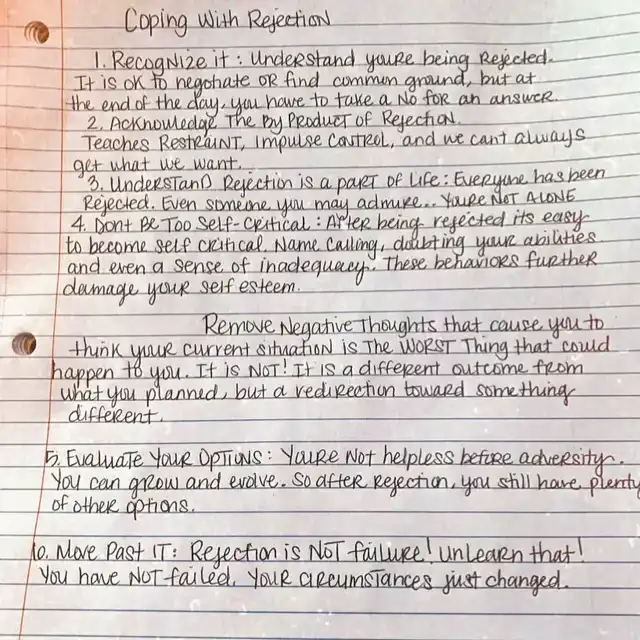 Coping With Rejection
1. Recognize it: Understand youre being Rejected.
It is ok to negotiate or find common ground, but at
the end of the day, you have to take a No for an answer.
2. Acknowledge The By Product of Rejection.
Teaches Restraint, Impulse Control, and we cant always
get what we want.
3. Understand Rejection is a part of Life: Everyone has been
Rejected. Even someone you may admire... You're NOT ALONE
4. Dont Be Too Self-Critical: After being rejected its easy
to become self critical. Name Calling, doubting your abilities
and even a sense of inadequacy. These behaviors further
damage your self esteem.
Remove Negative Thoughts that cause you to
think your current situation is The WORST Thing that could
happen to you. It is NOT! It is a different outcome from
what you planned, but a redirection toward something
different.
5. Evaluate Your Options: You're Not helpless before adversity.
You can grow and evolve. So after Rejection, you still have plenty
of other options.
6. Move Past IT: Rejection is NOT failure! Unlearn that!
You have NOT failed. Your circumstances just changed.